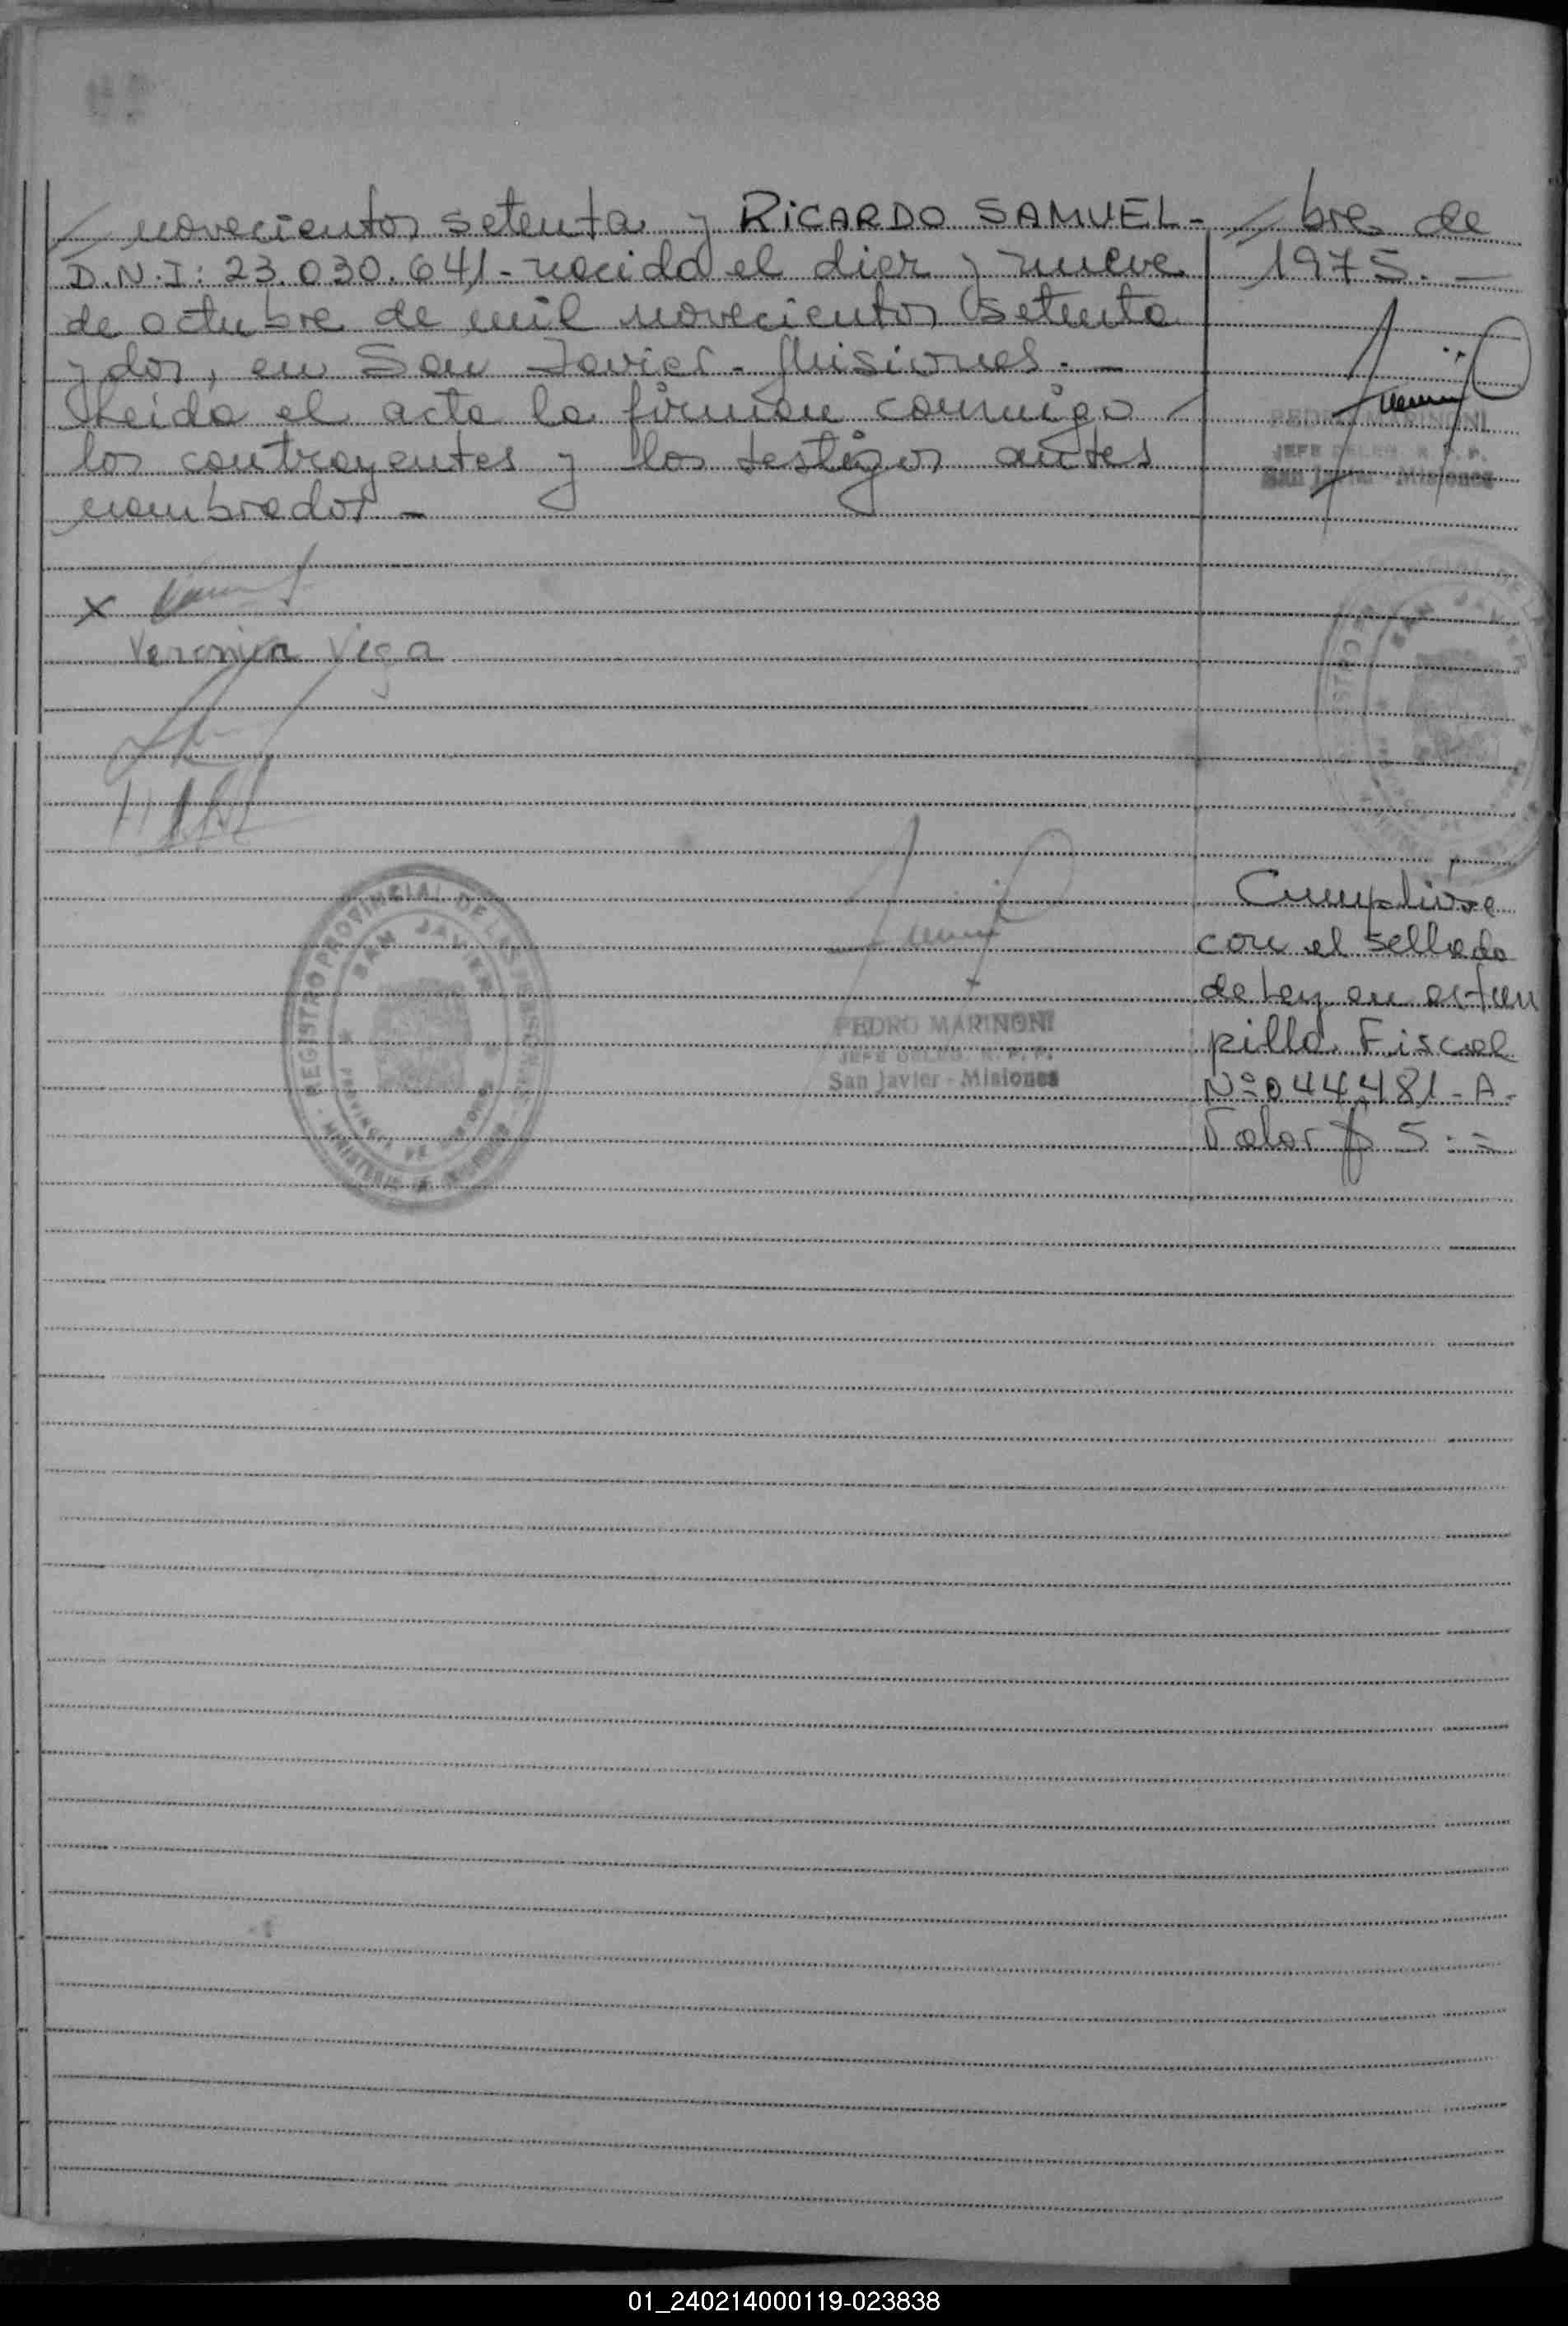 novecientos setenta y RICARDO SAMUEL-
D.N.I: 23.030.641- nacido el diez y nueve
de octubre de mil novecientos setenta
y dos, en San Javier - Misiones. -
Leida el acta la firman conmigo
los contrayentes y los testigos antes
nombrados -
bre de
1975. -
PEDRO MARINONI
JEFE DELEG. R. P. P.
San Javier - Misiones
SAN JAVIER
Veronica Vega
REGISTRO PROVINCIAL DE LAS PERSONAS
SAN JAVIER
PROVINCIA DE MISIONES
MINISTERIO DE GOBIERNO
PEDRO MARINONI
JEFE DELEG. R. P. P.
San Javier - Misiones
Cumplióse
con el sellado
de Ley en estam
pilla Fiscal
Nº 044.481 - A -
Valor $ 5
01_240214000119-023838